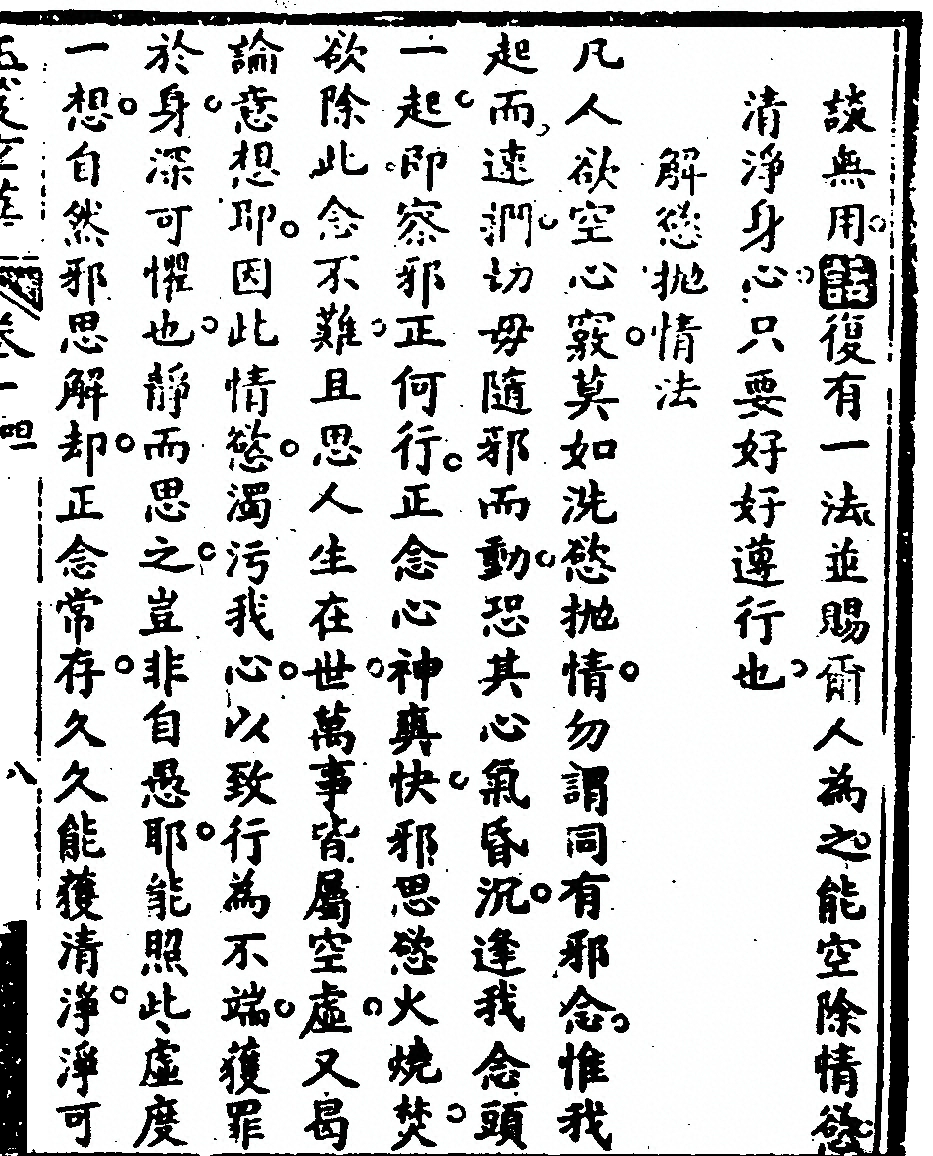 談無用話復有一法並賜爾人為之能空除情慾
清淨身心只要好好遵行也
解慾拋情法
凡人欲空心竅莫如洗慾拋情勿謂同有邪念惟我
起而速瀾切毋隨邪而動恐其心氣昏沉逢我念頭
一起即察邪正何行正念心神爽快邪思慾火燒焚
欲除此念不難且思人生在世萬事皆屬空虛又曷
論意想耶因此情慾濁污我心以致行為不端獲罪
於身深可懼也靜而思之豈非自愚耶能照此虛度
一想自然邪思解却正念常存久久能獲清淨淨可
卷一
八